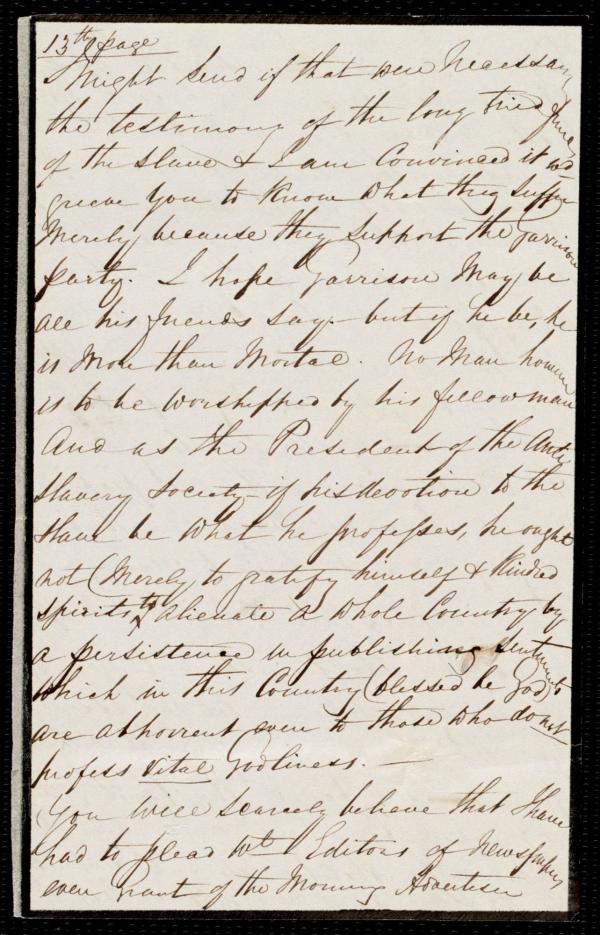 13th page
I might send if that were necessary
the testimony of the long tried friends
of the slave & I am convinced it wd
grieve you to know what they suffer
merely because they support the Garrison
party. I hope Garrison may be
all his friends say – but if he be, he
is more than mortal. No man however
is to be worshipped by his fellow man
And as the President of the Anti
slavery Society – if his devotion to the
slave be what he professes, he ought
not (merely to gratify himself & kindred
spirits to alienate a whole Country by
a persistence in publishing sentiments
which in this Country (blessed be God)
are abhorrent even to those who do not
profess vital Godliness. —
(You will scarcely believe that I have
had to plead wth Editors of Newspapers
even Grant of the Morning Advertiser